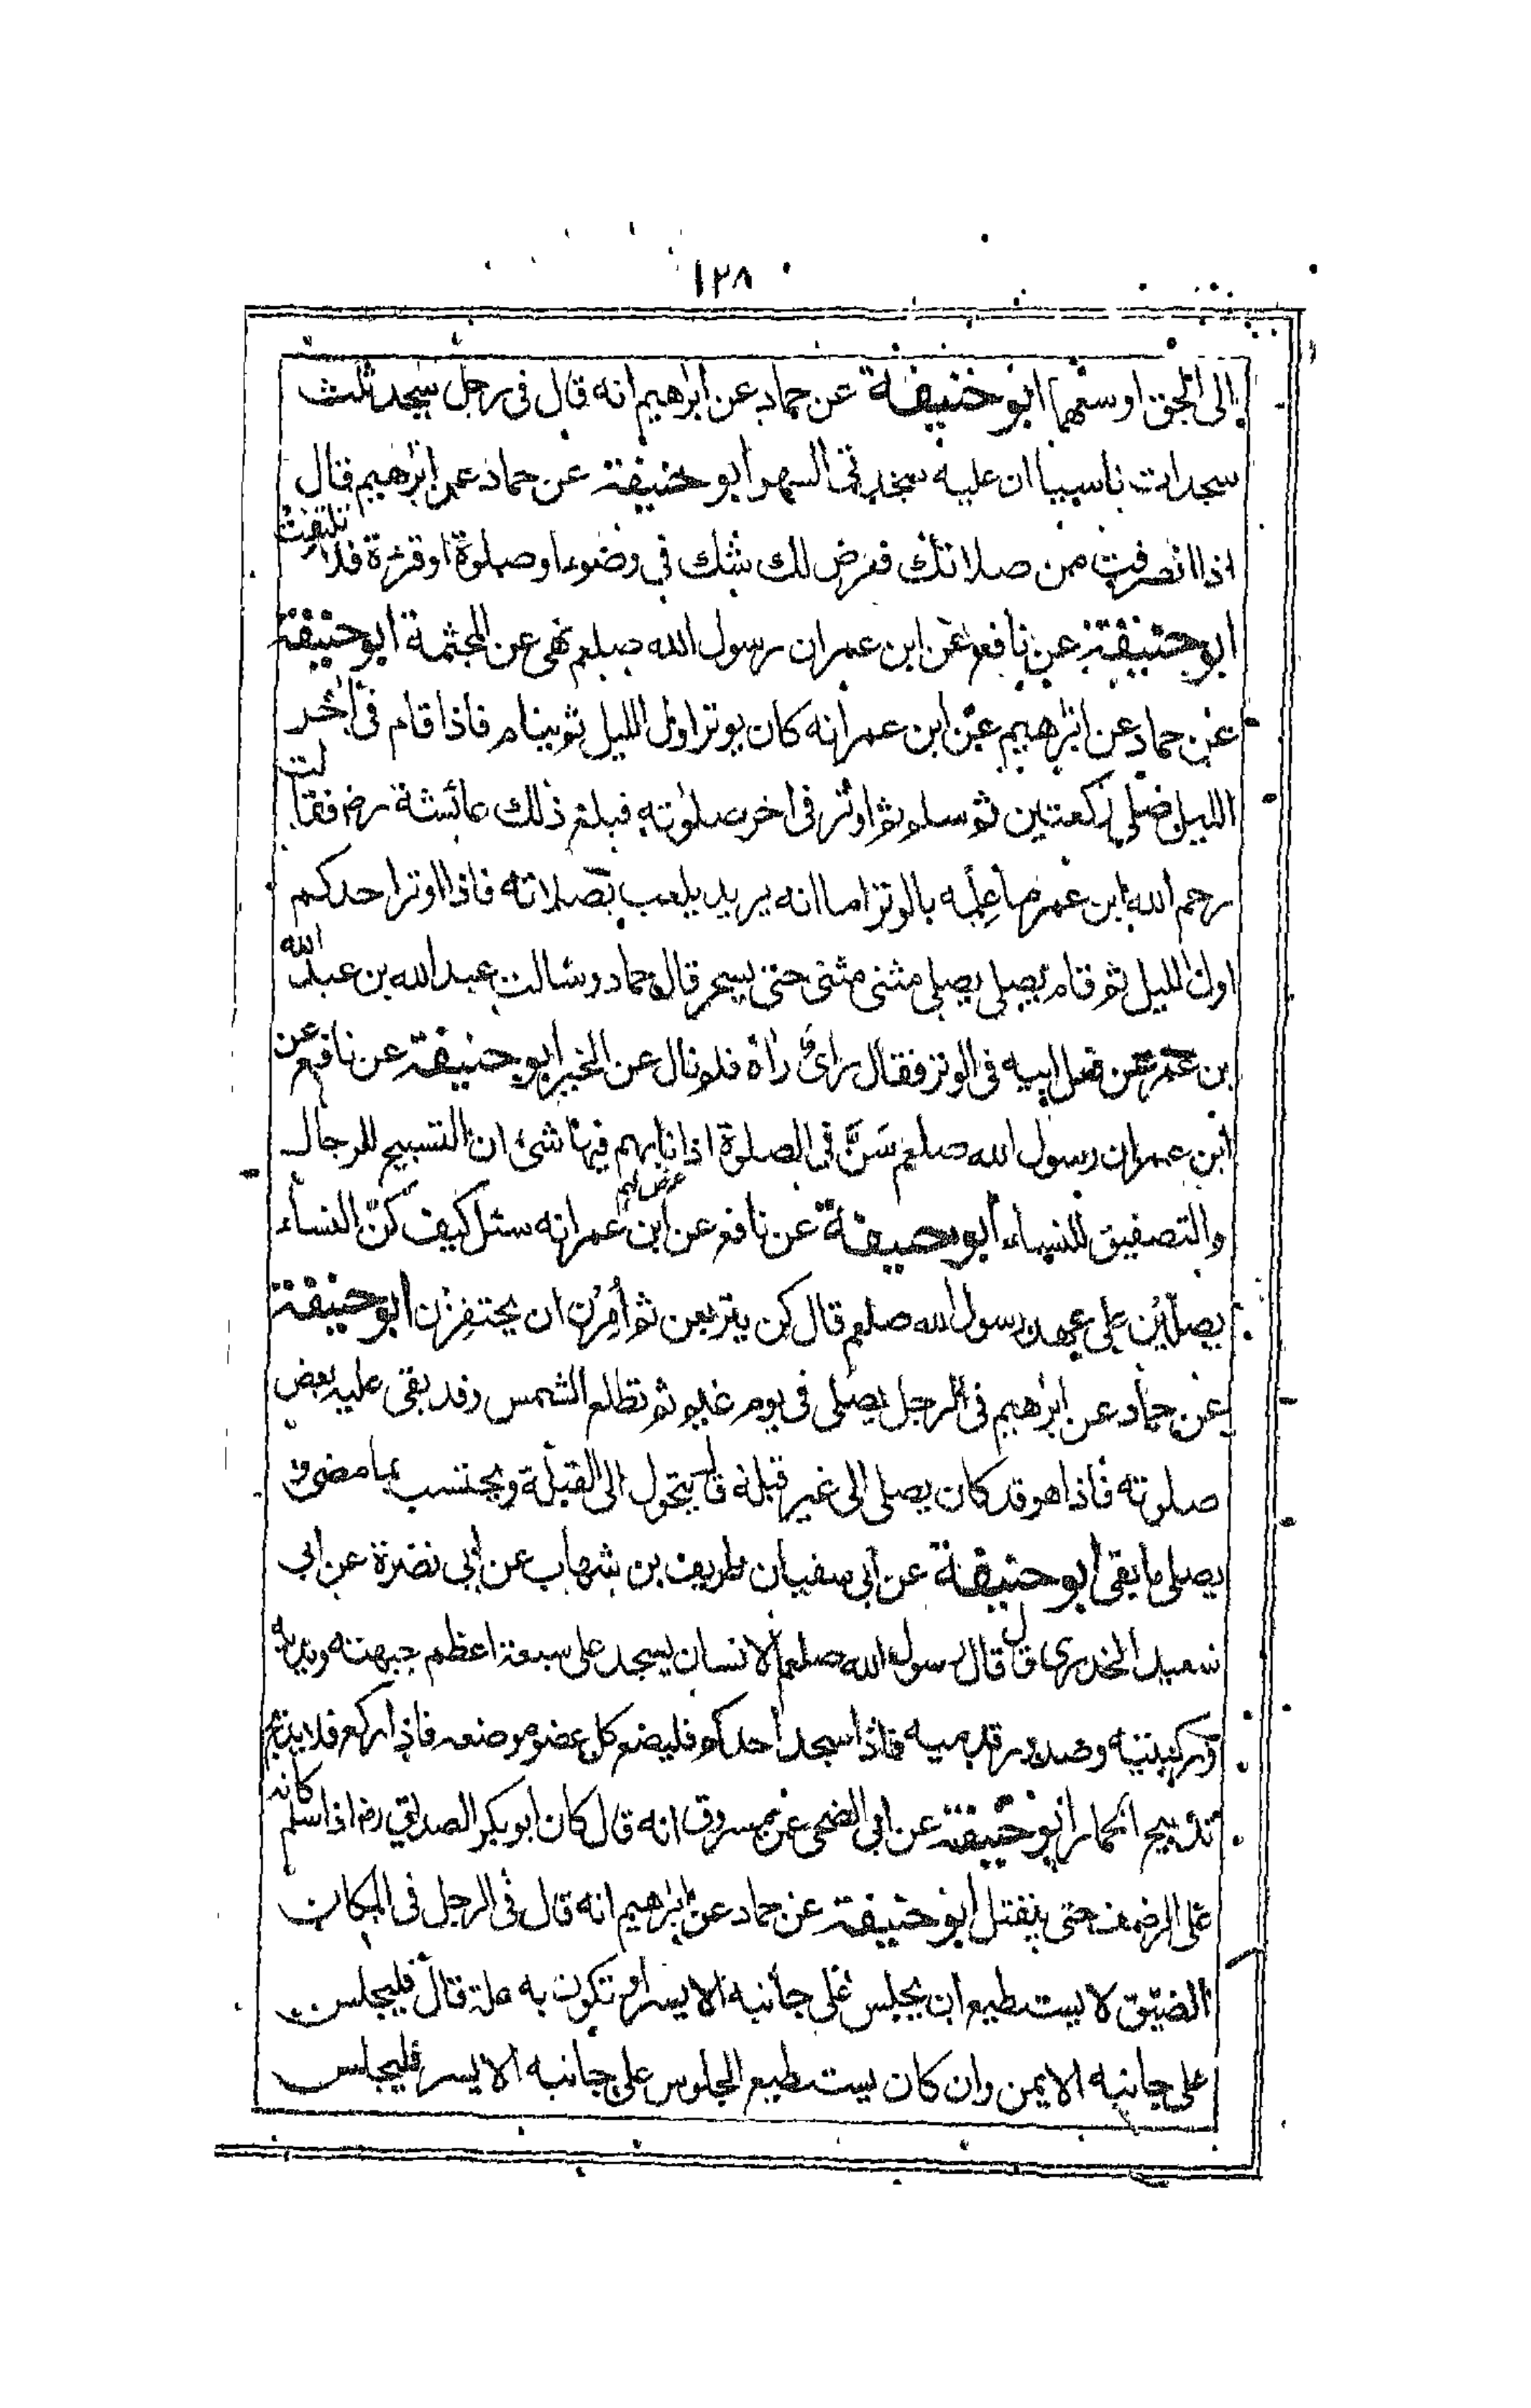 ١٢٨
الى الحق اوسعهما ابو حنيفة عن حماد عن ابرٰهيم انه قال فى رجل سجد ثلث
سجدات ناسيا ان عليه سجدتى السهو ابو حنيفة عن حماد عن ابرٰهيم قال
اذا انصرفت من صلاتك فعرض لك شك في وضوء او صلوة او قرءة فلا تلتفت
ابو حنيفة عن نافع عن ابن عمر ان رسول الله صلعم نهى عن المجثمة ابو حنيفة
عن حماد عن ابرٰهيم عن ابن عمر انه كان يوتر اول الليل ثم ينام فاذا قام فى اٰخر
الليل صلى ركعتين ثم سلم ثم اوتر فى اخر صلوٰته فبلغ ذلك عائشة رض فقالت
رحم الله ابن عمر ما علمه بالوتر اما انه يريد يلعب بصلاته فاذا اوتر احدكم
اول الليل ثم قام يصلى يصلى مثنى مثنى حتى يسحر قال حماد وسالت عبد الله بن عبد الله
بن عمر عن فعل ابيه فى الوتر فقال راى راٰه فلم نال عن الخير ابو حنيفة عن نافع عن
ابن عمر ان رسول الله صلعم سَنَّ في الصلوة اذا نابهم فيها شئ ان التسبيح للرجال
عرض لهم
والتصفيق للنساء ابو حنيفة عن نافع عن ابن عمر انه سئل كيف كنّ النساء
يصلّيْن على عهد رسول الله صلعم قال كن يتربعن ثم أُمِرْن ان يحتفزن ابو حنيفة
عن حماد عن ابرٰهيم فى الرجل يصلى فى يوم غيم ثم تطلع الشمس وقد بقى عليه بعض
صلوته فاذا هو قد كان يصلى الى غير قبلة قال يتحول الى القبلة ويحتسب بما مضى و
يصلى ما بقى ابو حنيفة عن ابى سفيان طريف بن شهاب عن ابى نضرة عن ابى
سعيد الخدرى قال قال رسول الله صلعم الانسان يسجد على سبعة اعظم جبهته ويديه
وركبتيه وصدور قدميه فاذا سجد احدكم فليضع كل عضو موضعه فاذا ركع فلا يدبح
تدبيح الحمار ابو حنيفة عن ابى الضحى عن مسروق انه قال كان ابو بكر الصديق رض اذا سلم كانه
على الرضف حتى ينفتل ابو حنيفة عن حماد عن ابرٰهيم انه قال فى الرجل فى المكان
الضيّق لا يستطيع ان يجلس على جانبه الايسر او تكون به علة قال فليجلس
على جانبه الايمن وان كان يستطيع الجلوس على جانبه الايسر فليجلس